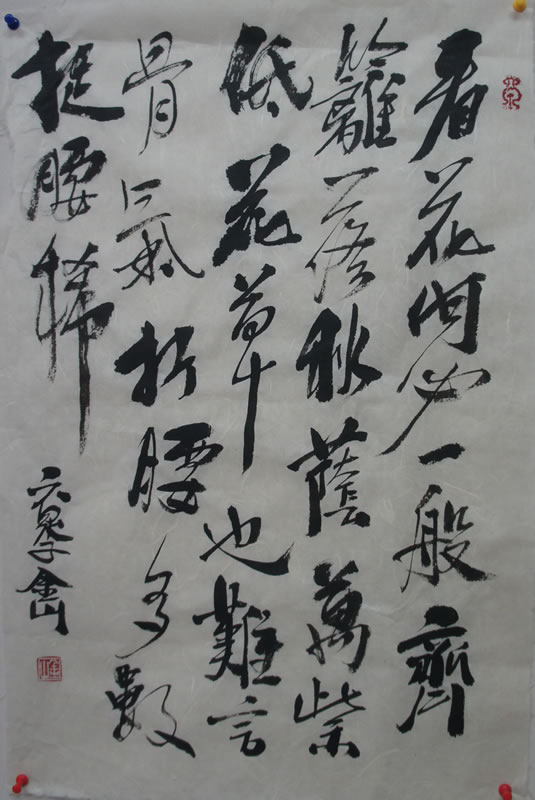 看花何必一般齊
籬落秋蔭萬紫
低花草也難言
骨氣折腰多數
挺腰稀